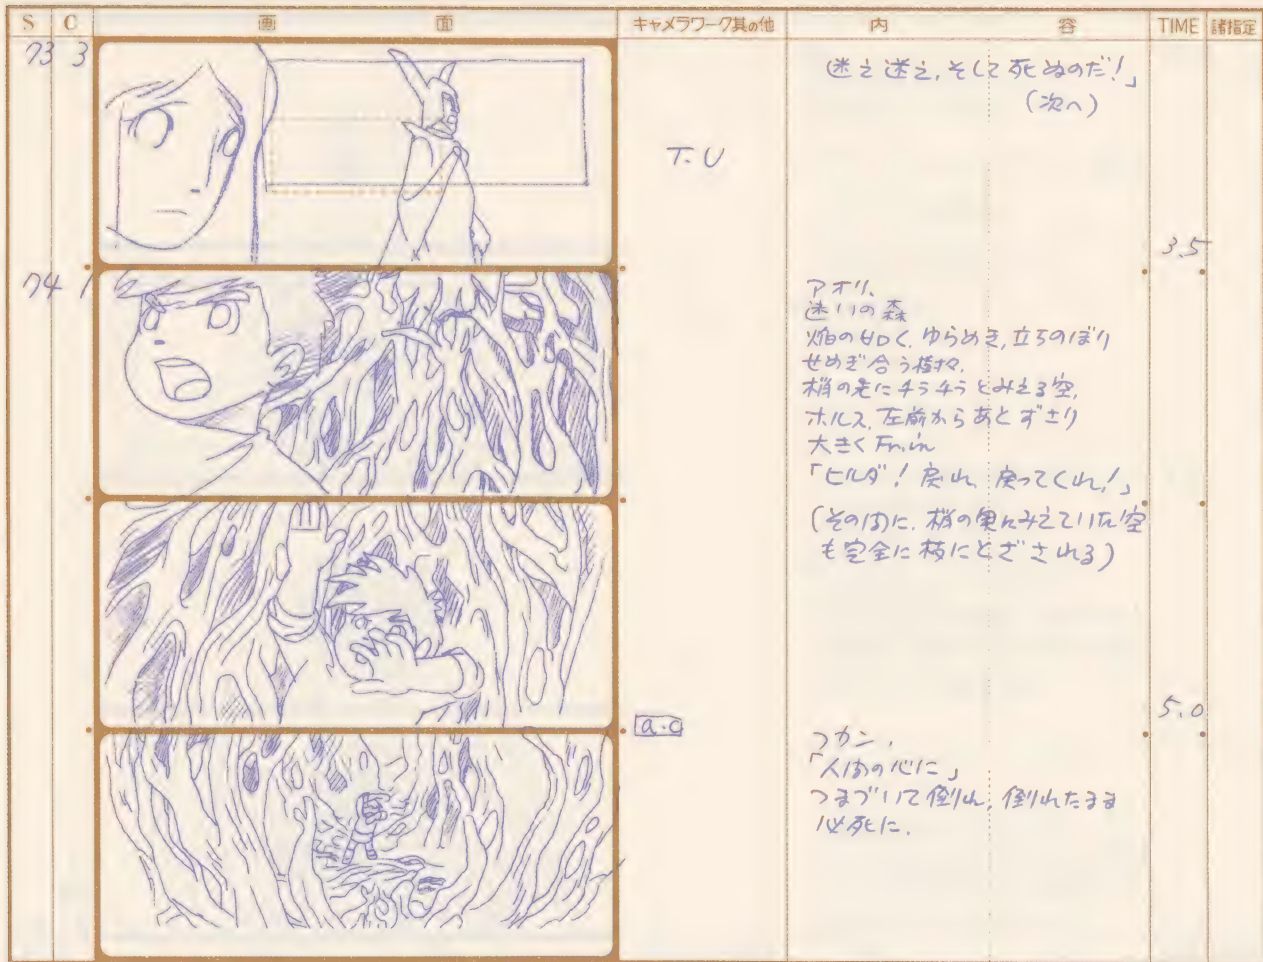 S C 画面 キャメラワーク其の他 内容 TIME 諸指定
73 3
迷え迷え、そして死ぬのだ!」
(次へ)
T.U
3.5
74 1
アオリ、
迷いの森
焔の如く、ゆらめき、立ちのぼり
せめぎ合う樹々。
梢の先にチラチラとみえる空、
ホルス、左前からあとずさり
大きく Fr.in
「ヒルダ! 戻れ、戻ってくれ!」
(その間に、梢の奥にみえていた空
も完全に枝にとざされる)
5.0
a.c
フカン、
「人間の心に」
つまづいて倒れ、倒れたまま
必死に、